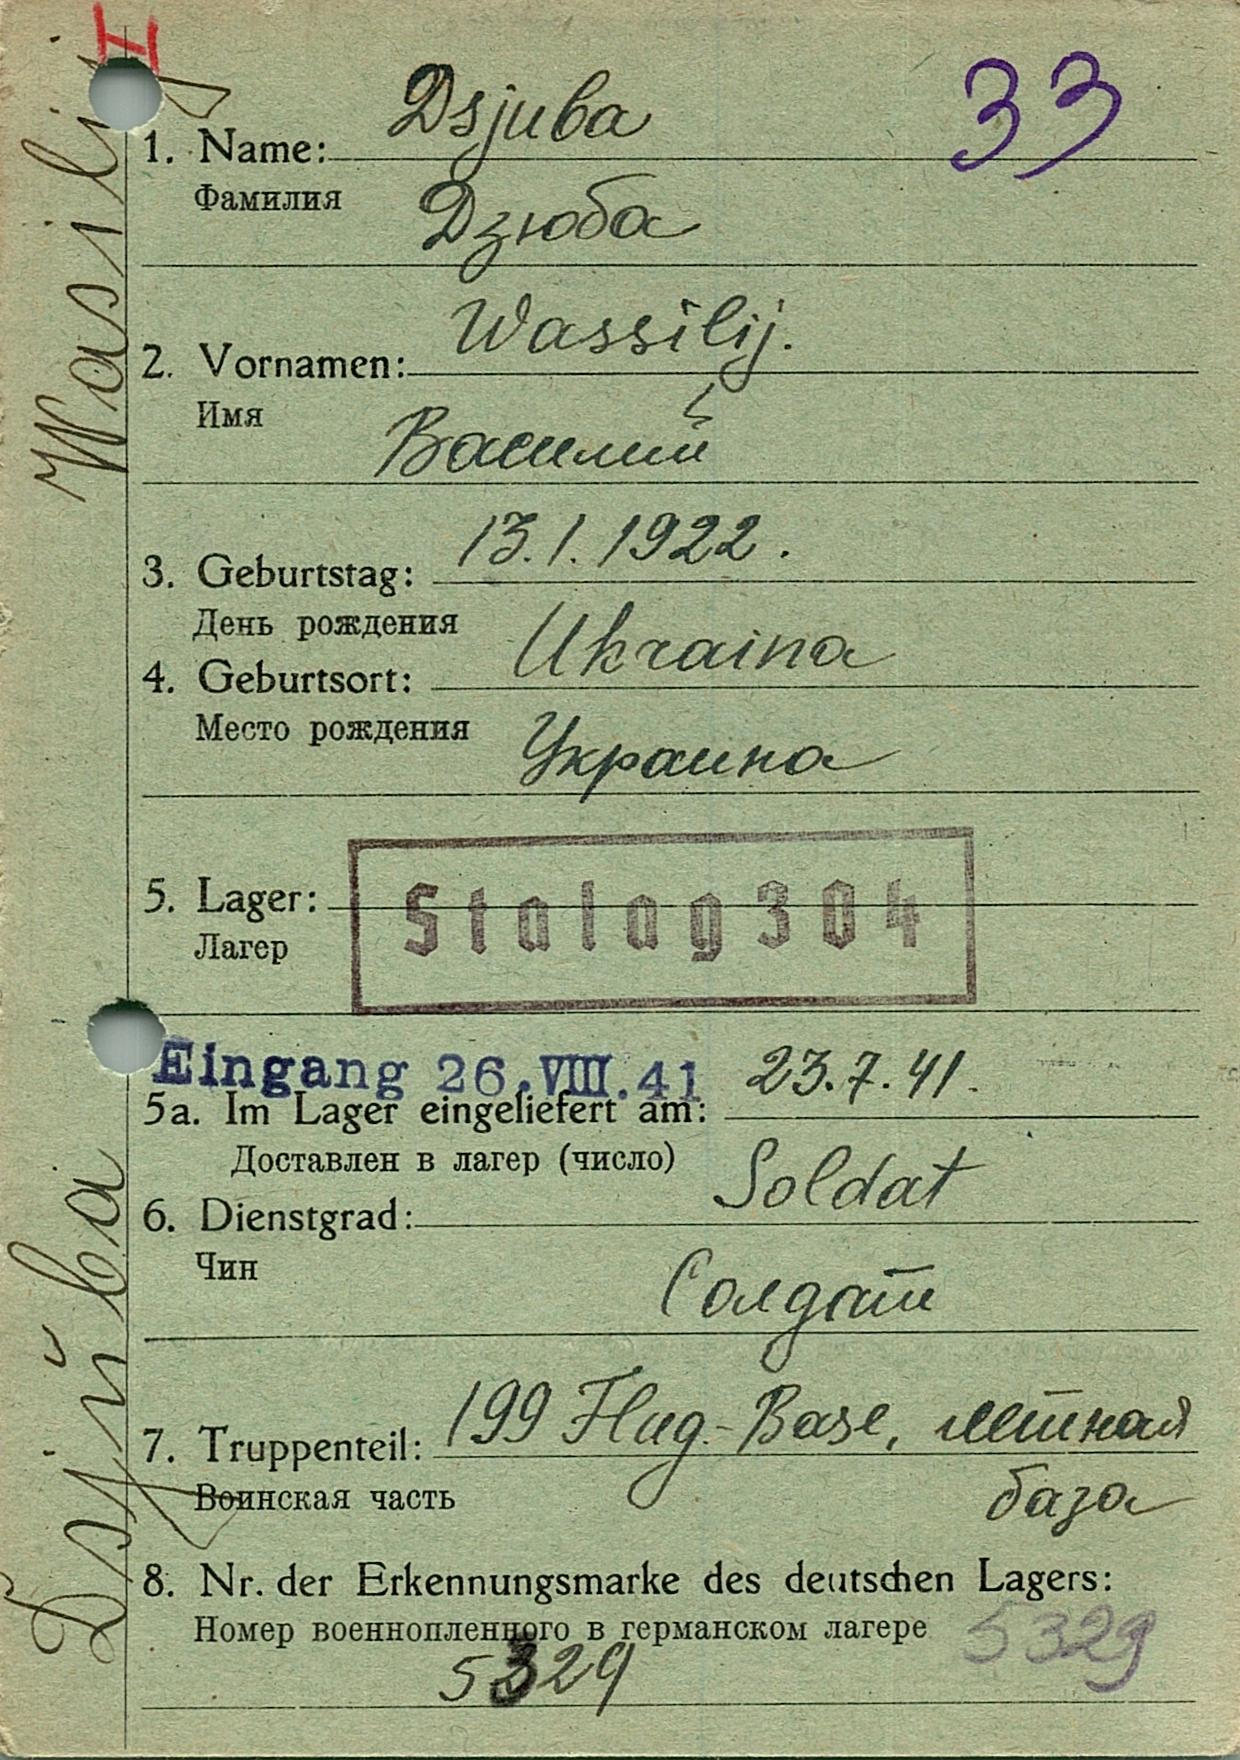 H
33
Wasilij
Dsjuba
1. Name: Dsjuba
Фамилия Дзюба
2. Vornamen: Wassilij.
Имя Василий
3. Geburtstag: 13.1.1922.
День рождения
4. Geburtsort: Ukraina
Место рождения Украина
5. Lager: Stalag 304
Лагер
Eingang 26.VIII.41
5a. Im Lager eingeliefert am: 23.7.41.
Доставлен в лагер (число)
6. Dienstgrad: Soldat
Чин Солдат
7. Truppenteil: 199 Flug-Base, летная
Воинская часть база
8. Nr. der Erkennungsmarke des deutschen Lagers:
Номер военнопленного в германском лагере 5329
5329